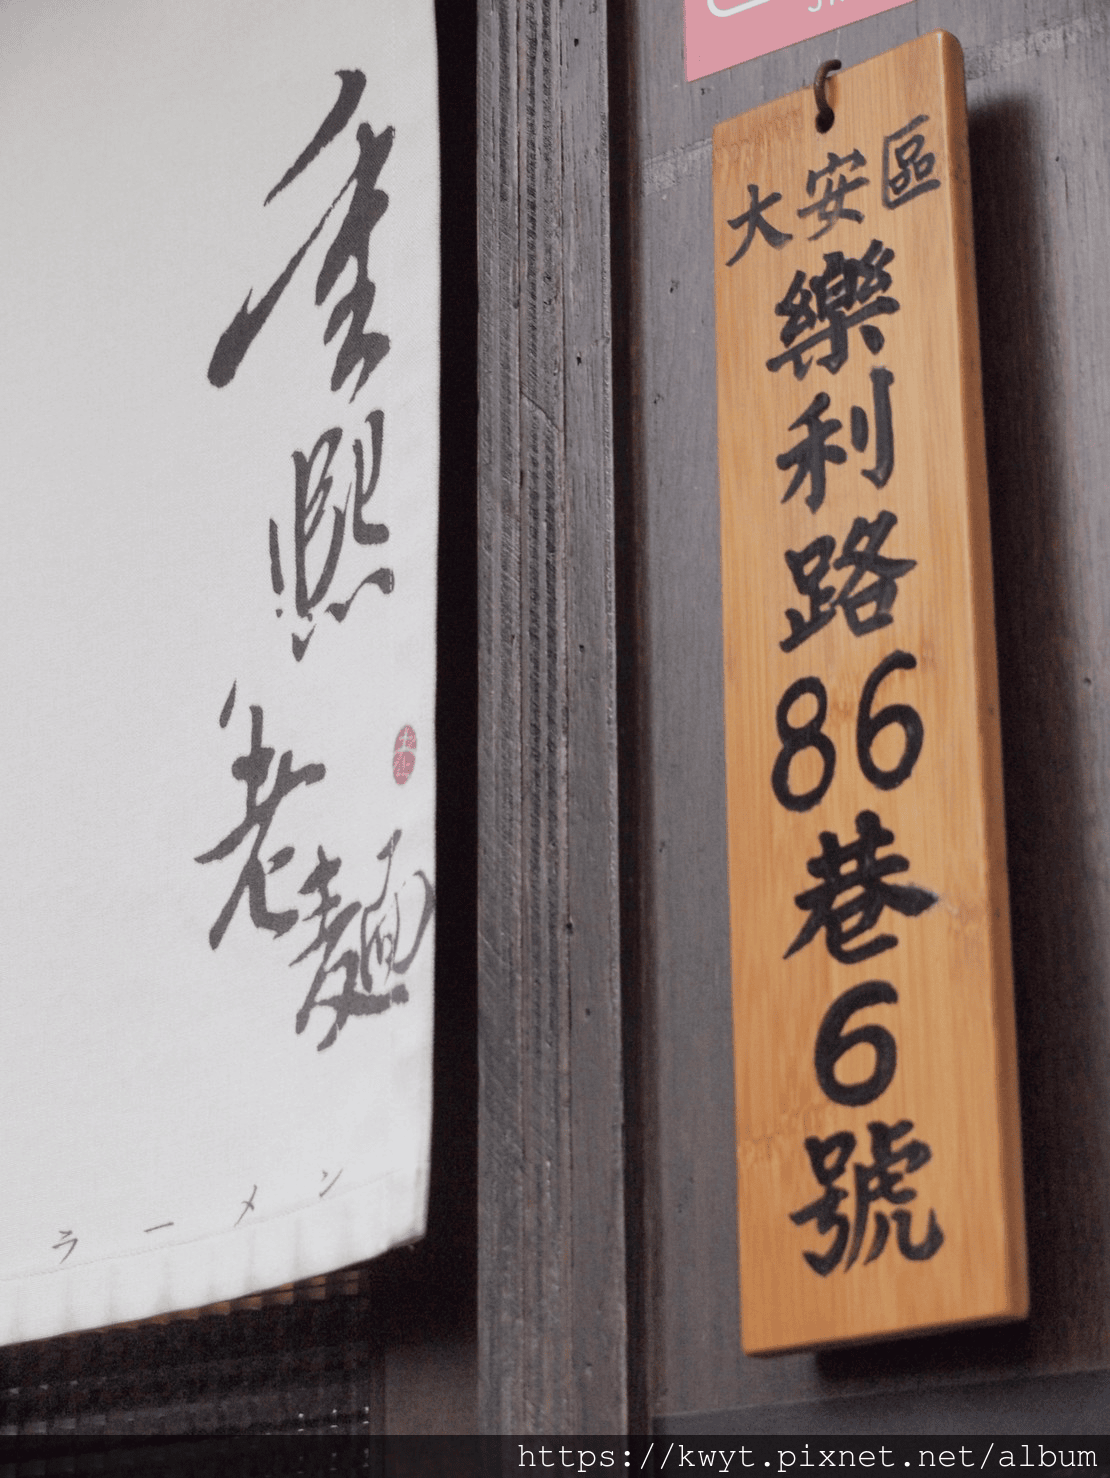 隹熙
老麵
ラーメン
大安區
樂利路86巷6號
https://kwyt.pixnet.net/album